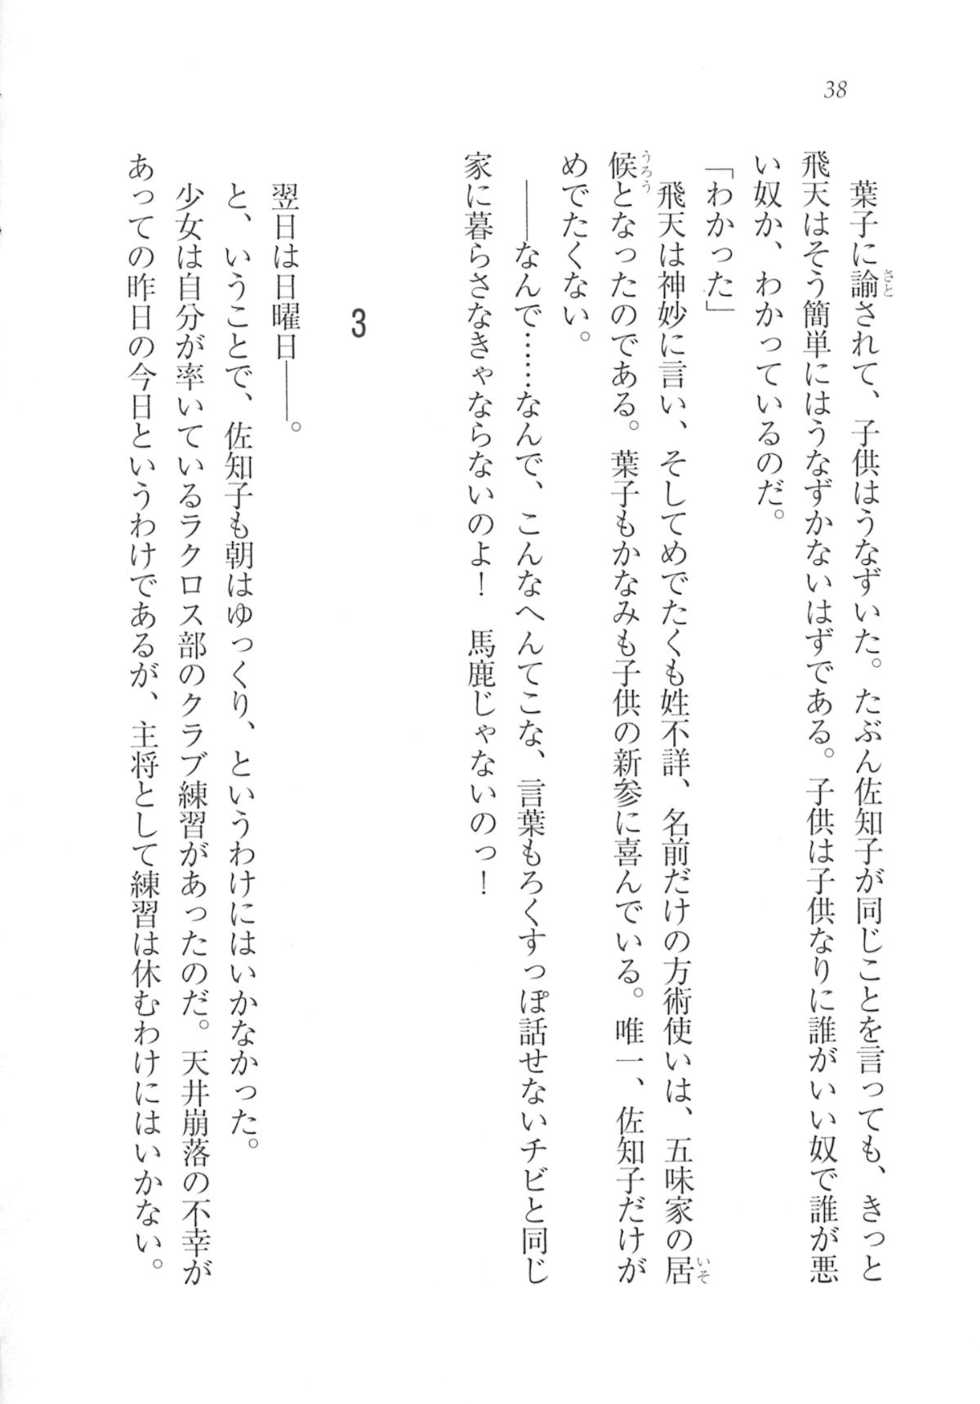 38
葉子に諭されて、子供はうなずいた。たぶん佐知子が同じことを言っても、きっと
飛天はそう簡単にはうなずかないはずである。子供は子供なりに誰がいい奴で誰が悪
い奴か、わかっているのだ。
「わかった」
飛天は神妙に言い、そしてめでたくも姓不詳、名前だけの方術使いは、五味家の居
候となったのである。葉子もかなみも子供の新参に喜んでいる。唯一、佐知子だけが
めでたくない。
――なんで……なんで、こんなへんてこな、言葉もろくすっぽ話せないチビと同じ
家に暮らさなきゃならないのよ！　馬鹿じゃないのっ！
3
翌日は日曜日――。
と、いうことで、佐知子も朝はゆっくり、というわけにはいかなかった。
少女は自分が率いているラクロス部のクラブ練習があったのだ。天井崩落の不幸が
あっての昨日の今日というわけであるが、主将として練習は休むわけにはいかない。